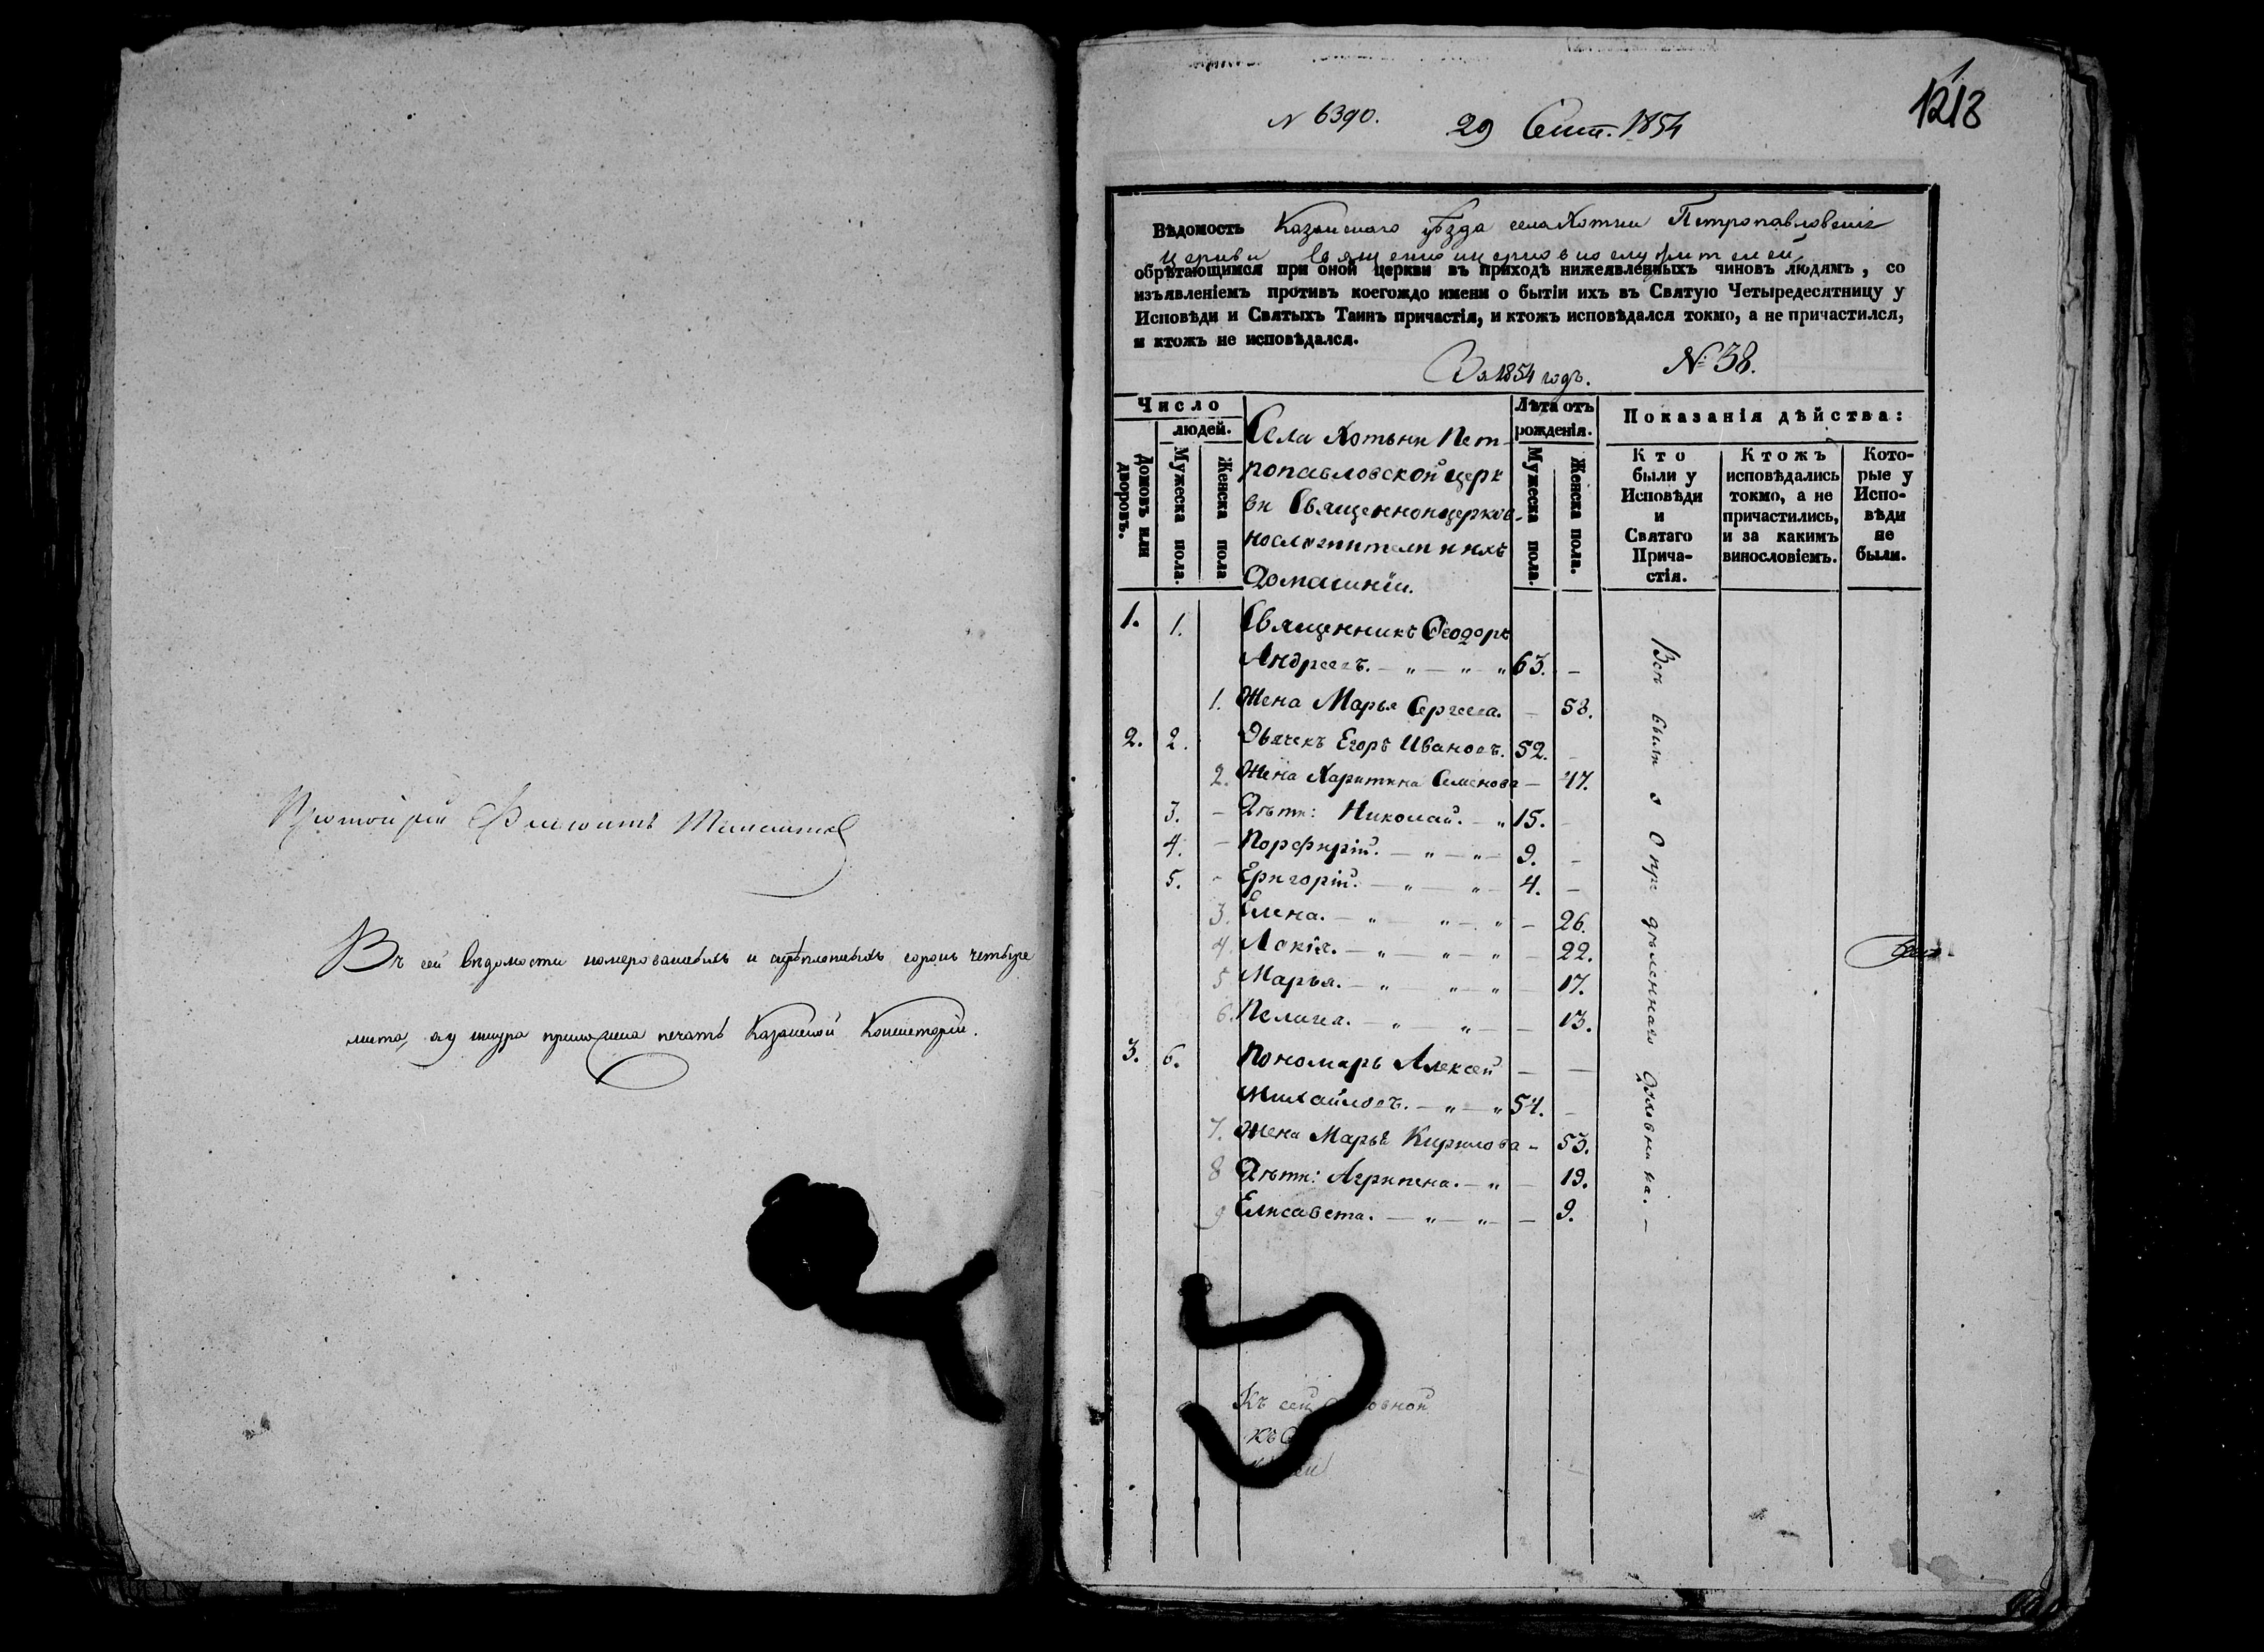 Протоіерей
Въ сей вѣдомости номерованныхъ и скрѣпленныхъ сорокъ четыре
листа, а у шнура приложена печать Казанской Консисторіи.
N 6390. 29 Сент. 1854
1213
Вѣдомость Казанскаго уѣзда села Хотни Петропавловскія
церкви Священноицерковнослужителей,
обрѣтающимся при оной церкви въ приходѣ нижеявленныхъ чиновъ людямъ, со
изъявленіемъ противъ коегождо имени о бытіи ихъ въ Святую Четыредесятницу у
Исповѣди и Святыхъ Таинъ причастія, и ктожъ исповѣдался токмо, а не причастился,
и ктожъ не исповѣдался.
За 1854 годъ. № 38.
Число
людей.
Домовъ или дворовъ.
Мужеска пола.
Женска пола
Села Хотьни Пет-
ропавловской церк
ви Священноицерков-
нослужители и ихъ
Домашніи.
Лѣта отъ
рожденія.
Мужеска пола.
Женска пола.
Показанія дѣйства:
Кто
были у
Исповѣди
и
Святаго
Прича-
стія.
Ктожъ
исповѣдались
токмо, а не
причастились,
и за какимъ
винословіемъ.
Кото-
рые у
Испо-
вѣди
не
были.
1. 1. Священникъ Ѳеодоръ
Андреевъ. — „ — „ — „ 63. —
1. Жена Марья Сергеева. — 58.
2. 2. Дьячекъ Егоръ Ивановъ. 52. —
2. Жена Харитина Семенова — 47.
3. — Дѣти: Николай. — „ 15. —
4. — Порфирій. — „ — „ — 9. —
5. — Григорій. — „ — „ — 4. —
3. Елена. — „ — „ — „ — 26.
4. — „ — „ — „ — 22.
5 Марья. — „ — „ — „ — 17.
6. Пелагея. — „ — „ — — 13.
3. 6. Пономарь Алексей — —
Михайловъ. — „ — „ 54. —
7. Жена Марья Кирилова — 53.
8 Дѣти: Агрипена. — „ — 19.
9 Елисавета. — „ — „ — — 9.
Всѣ были
Къ сей